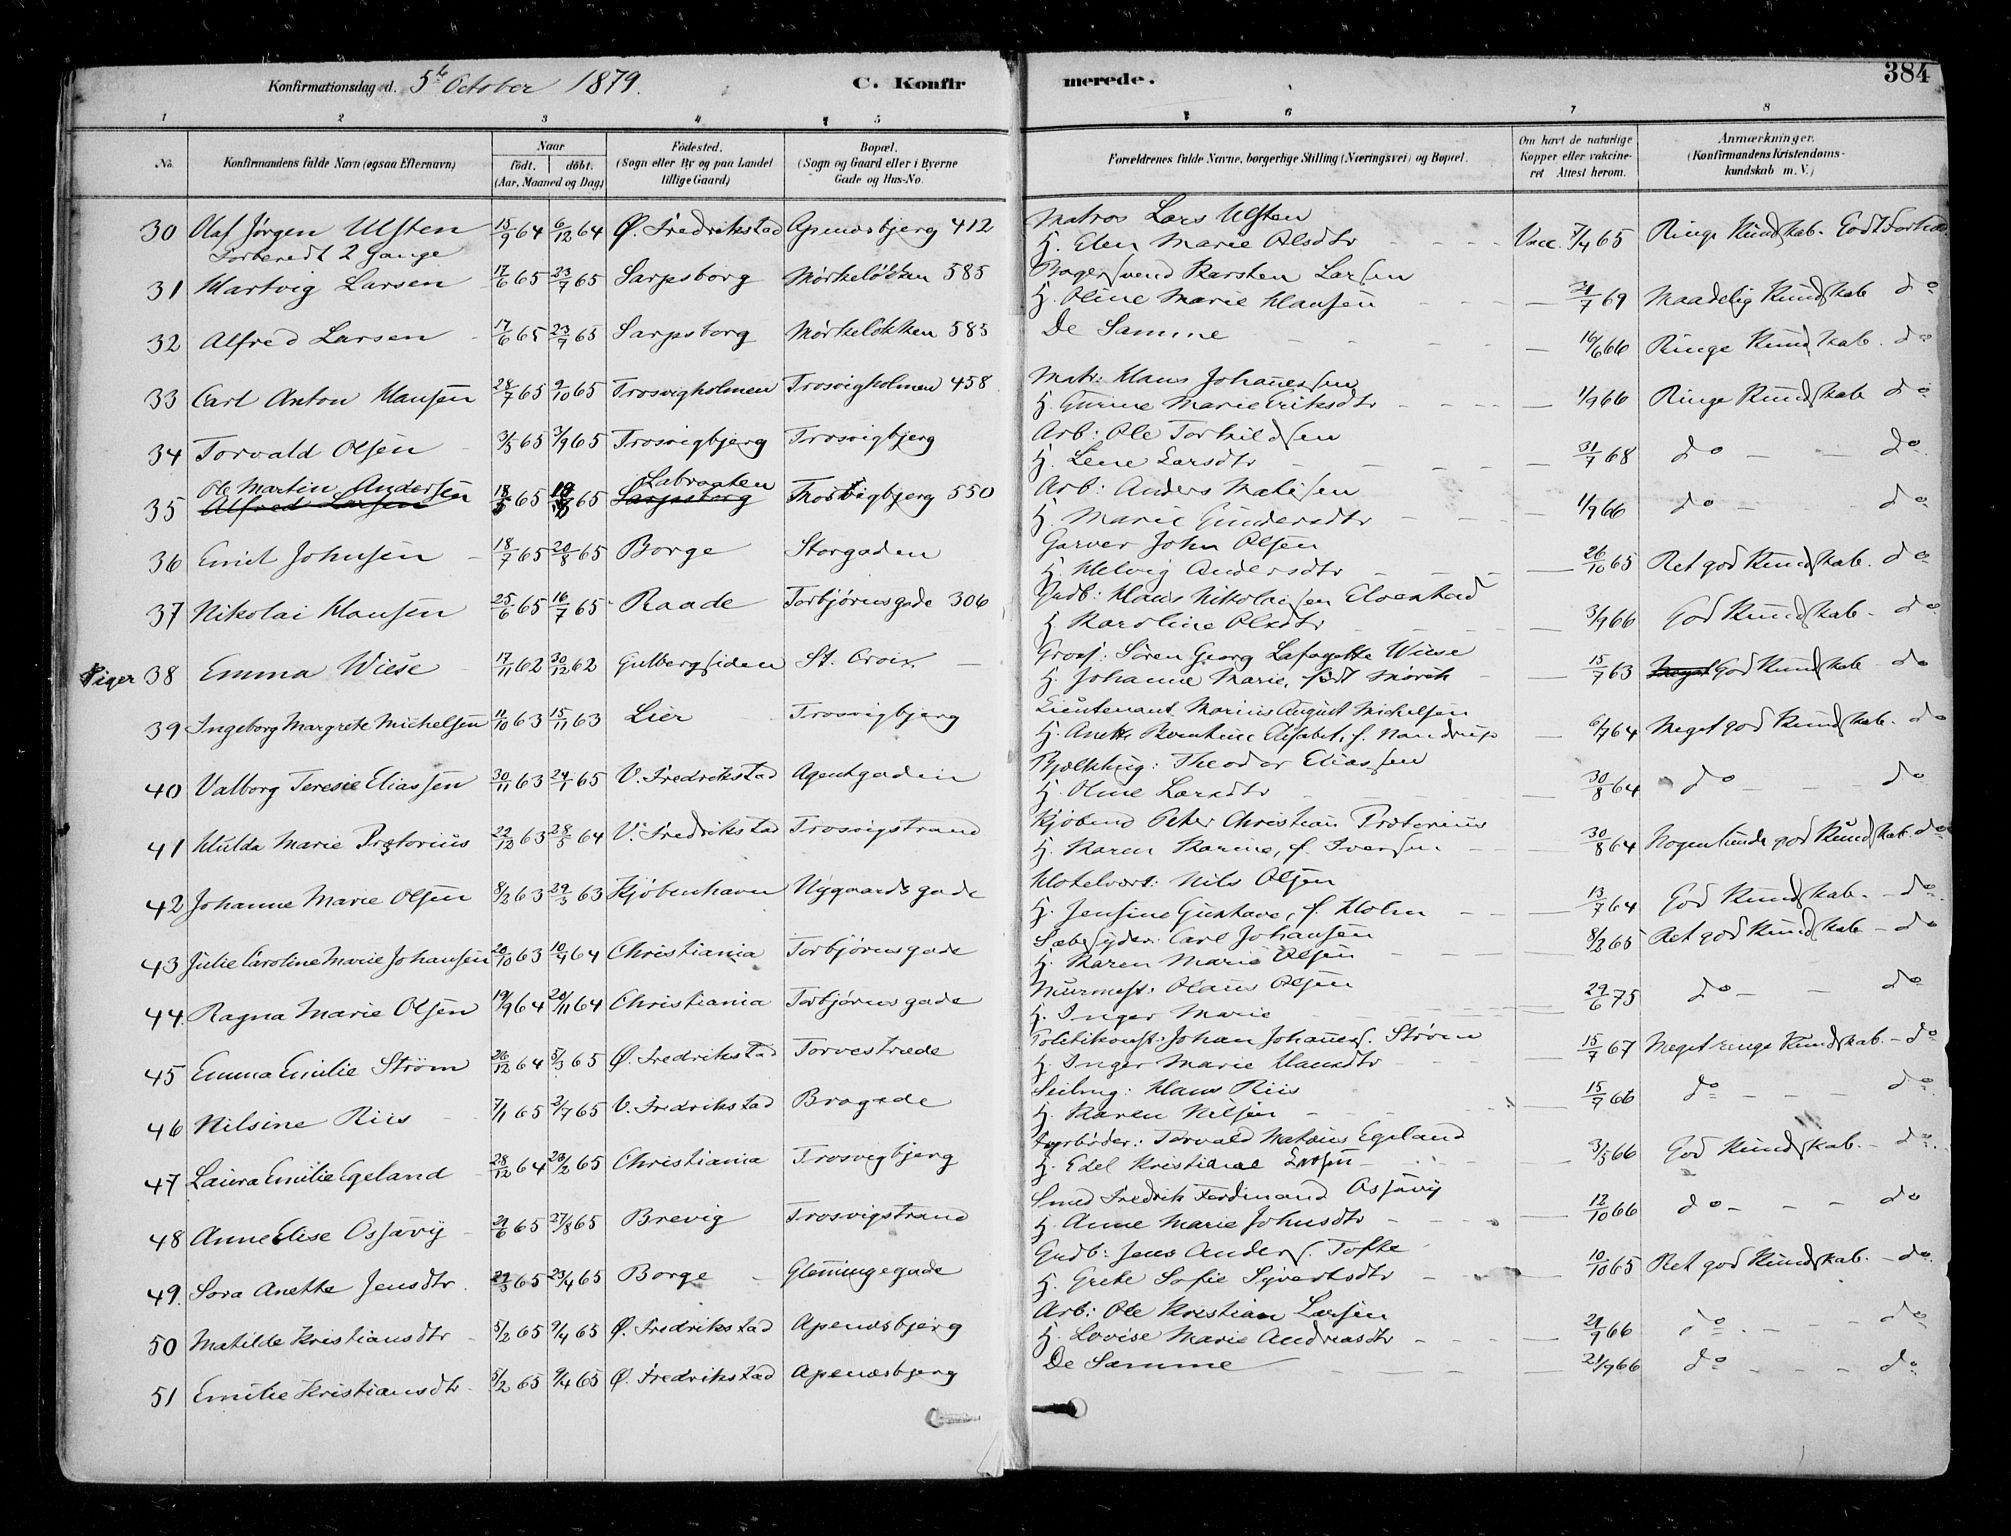 Konfirmationsdag d. 5te October 1879. C. Konfirmerede. 384
1 2 3 4 5 6 7 8
No. Konfirmandens fulde Navn (ogsaa Efternavn) Naar født. døbt. (Aar, Maaned og Dag) Fødested. (Sogn eller By og paa Landet tillige Gaard) Bopæl. (Sogn og Gaard eller i Byerne Gade og Hus-No. Forældrenes fulde Navne, borgerlige Stilling (Næringsvei) og Bopæl. Om havt de naturlige Kopper eller vakcineret Attest herom. Anmærkninger. (Konfirmandens Kristendomskundskab m. V.)
30 Olaf Jörgen Ulsten 15/9 64 6/12 64 Ø. Fredrikstad Apenæsbjerg 412 Matros Lars Ulsten
Forberedt 2 Gange H. Elen Marie Olsdtr Vacc. 7/4 65 Ringe Kundskab. Godt Forhold
31 Hartvig Larsen 17/6 65 23/7 65 Sarpsborg Mørkeløkken 585 Bagersvend Karsten Larsen
H. Oline Marie Hansen 21/7 69 Maadelig Kundskab do
32 Alfred Larsen 17/6 65 23/7 65 Sarpsborg Mørkeløkken 583 De Samme 16/6 66 Ringe Kundskab. do
33 Carl Anton Hansen 28/7 65 9/10 65 Trosvigholmen Trosvigholmen 458 Matr: Hans Johannesen
H. Gurine Marie Eriksdtr 1/9 66 Ringe Kundskab do
34 Torvald Olsen 3/5 65 3/9 65 Trosvigbjerg Trosvigbjerg Arb: Ole Torkildsen
H. Lene Larsdtr 31/7 68 do do
35 Ole Martin Andersen Alfred Larsen 18/5 65 65 Labraaten Sarpsborg Trosvigbjerg 550 Arb: Anders Matisen
H. Marie Gundersdtr 1/9 66 do do
36 Emil Johnsen 18/7 65 20/8 65 Borge Storgaden Garver John Olsen
H. Helvig Andersdtr 26/10 65 Ret god Kundskab. do
37 Nikolai Hansen 25/6 65 16/7 65 Raade Torbjørnsgade 306 Gudb: Hans Nikolaisen Elvestad
H. Karoline Olsdtr 3/9 66 God Kundskab do
Piger 38 Emma Wiese 17/11 62 30/12 62 Gulbergsiden St. Croix Grosf: Sören Georg Lafayette Wiese
H. Johanne Marie, født Mörch 15/7 63 Meget God Kundskab do
39 Ingeborg Margrete Michelsen 11/10 63 15/11 63 Lier Trosvigbjerg Lieutenant Marius August Michelsen
H. Anette Elisabet, f. Nandrup 6/7 64 Meget god Kundskab. do
40 Valborg Teresie Eliassen 30/11 63 24/1 65 V. Fredrikstad Agentgaden Theodor Eliassen
H. Oline Larsdtr 30/8 64 do do
41 Hulda Marie Prætorius 22/12 63 28/5 64 V. Fredrikstad Trosvigstrand Kjøbmd Peter Christian Prætorius
H. Karen Karine, f. Iversen 30/8 64 Nogenlunde god Kundskab. do
42 Johanne Marie Olsen 8/2 63 29/3 63 Kjøbenhavn Nygaardsgade Hotelvært: Nils Olsen
H. Jensine Gustava, f. Holm 13/7 64 God Kundskab. do
43 Julie Caroline Marie Johansen 20/10 63 10/4 64 Christiania Torbjørnsgade Sæbesyder: Carl Johansen
H. Karen Marie Olsen 8/2 65 Ret god Kundskab do
44 Ragna Marie Olsen 19/9 64 20/11 64 Christiania Torbjørnsgade Murmest: Olaus Olsen
H. Inger Marie 29/6 75 do do
45 Emma Emilie Strøm 26/12 64 5/3 65 Ø. Fredrikstad Torvestræde Politikonst: Johan Johannes. Strøm
H. Inger Marie Hansdtr 15/7 67 Meget ringe Kundskab. do
46 Nilsine Riis 7/1 65 2/7 65 V. Fredrikstad Brogade Seilmg: Hans Riis
H. Karen Nilsen 15/7 66 do do
47 Laura Emilie Egeland 28/12 64 26/2 65 Christiania Trosvigbjerg Fyrbøder: Torvald Matæus Egeland
H. Edel Kristiane 3/5 66 God Kundskab. do
48 Anne Elise Ossavy 21/6 65 27/8 65 Brevig Trosvigstrand Smed Fredrik Ferdinand Ossavy
H. Anne Marie Johnsdtr 12/10 66 do do
49. Sora Anette Jensdtr. 29/3 65 23/4 65 Borge Glemmingegade Gudb: Jens Anders. Tofte
H. Grete Sofie Syvertsdtr 10/10 65 Ret god Kundskab. do
50 Matilde Kristiansdtr 5/2 65 9/4 65 Ø. Fredrikstad Apenæsbjerg Arb: Ole Kristian Larsen
H. Lovise Marie Andreasdtr 21/9 66 do do
51 Emilie Kristiansdtr 5/2 65 9/4 65 Ø. Fredrikstad Apenæsbjerg De Samme 21/9 66 do do